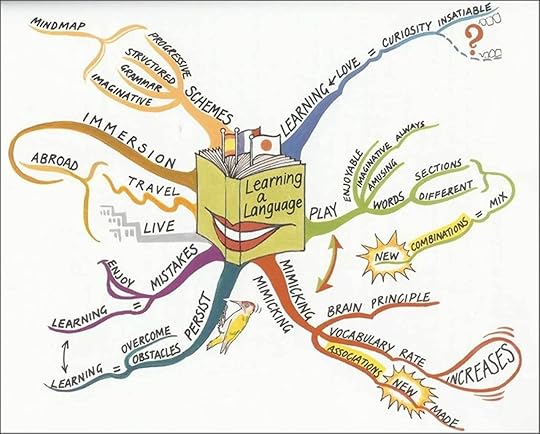 Learning
a
Language
MINDMAP
PROGRESSIVE
STRUCTURED
GRAMMAR
IMAGINATIVE
SCHEMES
IMMERSION
ABROAD
TRAVEL
LIVE
ENJOY
MISTAKES
LEARNING =
PERSIST
OVERCOME
OBSTACLES
LEARNING =
LEARNING ↙ LOVE = CURIOSITY INSATIABLE
?
PLAY
ENJOYABLE
IMAGINATIVE ALWAYS
AMUSING
WORDS
SECTIONS
DIFFERENT
NEW COMBINATIONS = MIX
MIMICKING
MIMICKING
BRAIN PRINCIPLE
VOCABULARY RATE
INCREASES
ASSOCIATIONS NEW MADE